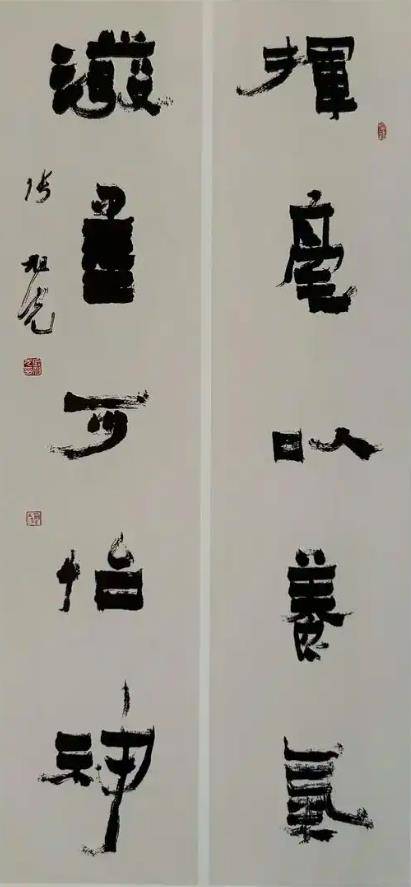 揮毫以養氣
潑墨可怡神
张